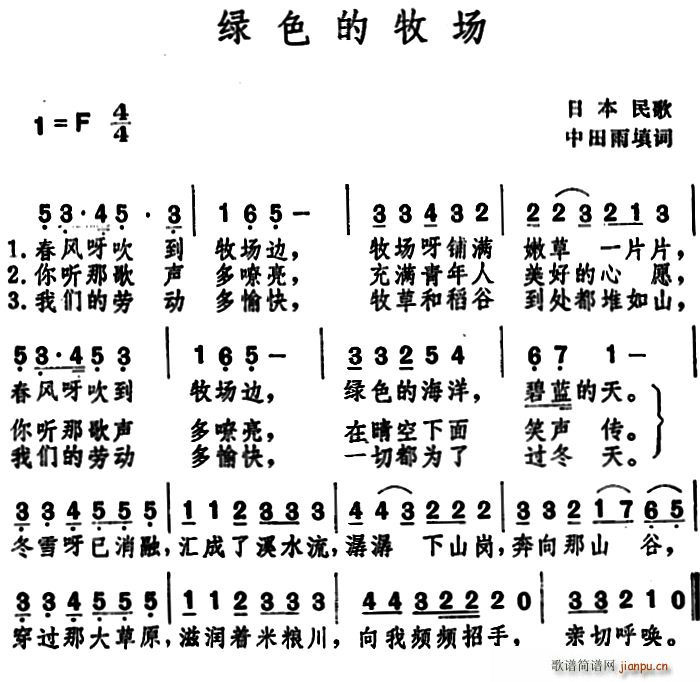 绿色的牧场
1=F 4/4
日本 民歌
中田雨填词
5 3·4 5·3 | 1 6 5 — | 3 3 4 3 2 | 2 2 3 2 1 3 |
1.春风呀吹 到 牧场边, 牧场呀铺满 嫩草 一片片,
2.你听那歌 声 多嘹亮, 充满青年人 美好的心 愿,
3.我们的劳 动 多愉快, 牧草和稻谷 到处都堆如山,
5 3·4 5 3 | 1 6 5 — | 3 3 2 5 4 | 6 7 1 —
春风呀吹到 牧场边, 绿色的海洋, 碧蓝的天。
你听那歌声 多嘹亮, 在晴空下面 笑声 传。
我们的劳动 多愉快, 一切都为了 过冬 天。
3 3 4 5 5 5 | 1 1 2 3 3 3 | 4 4 3 2 2 2 | 3 3 2 1 7 6 5 |
冬雪呀已消融,汇成了溪水流,潺潺 下山岗,奔向那山 谷,
3 3 4 5 5 5 | 1 1 2 3 3 3 | 4 4 3 2 2 2 0 | 3 3 2 1 0 ‖
穿过那大草原,滋润着米粮川,向我频频招手, 亲切呼唤。
歌谱简谱网 jianpu.cn